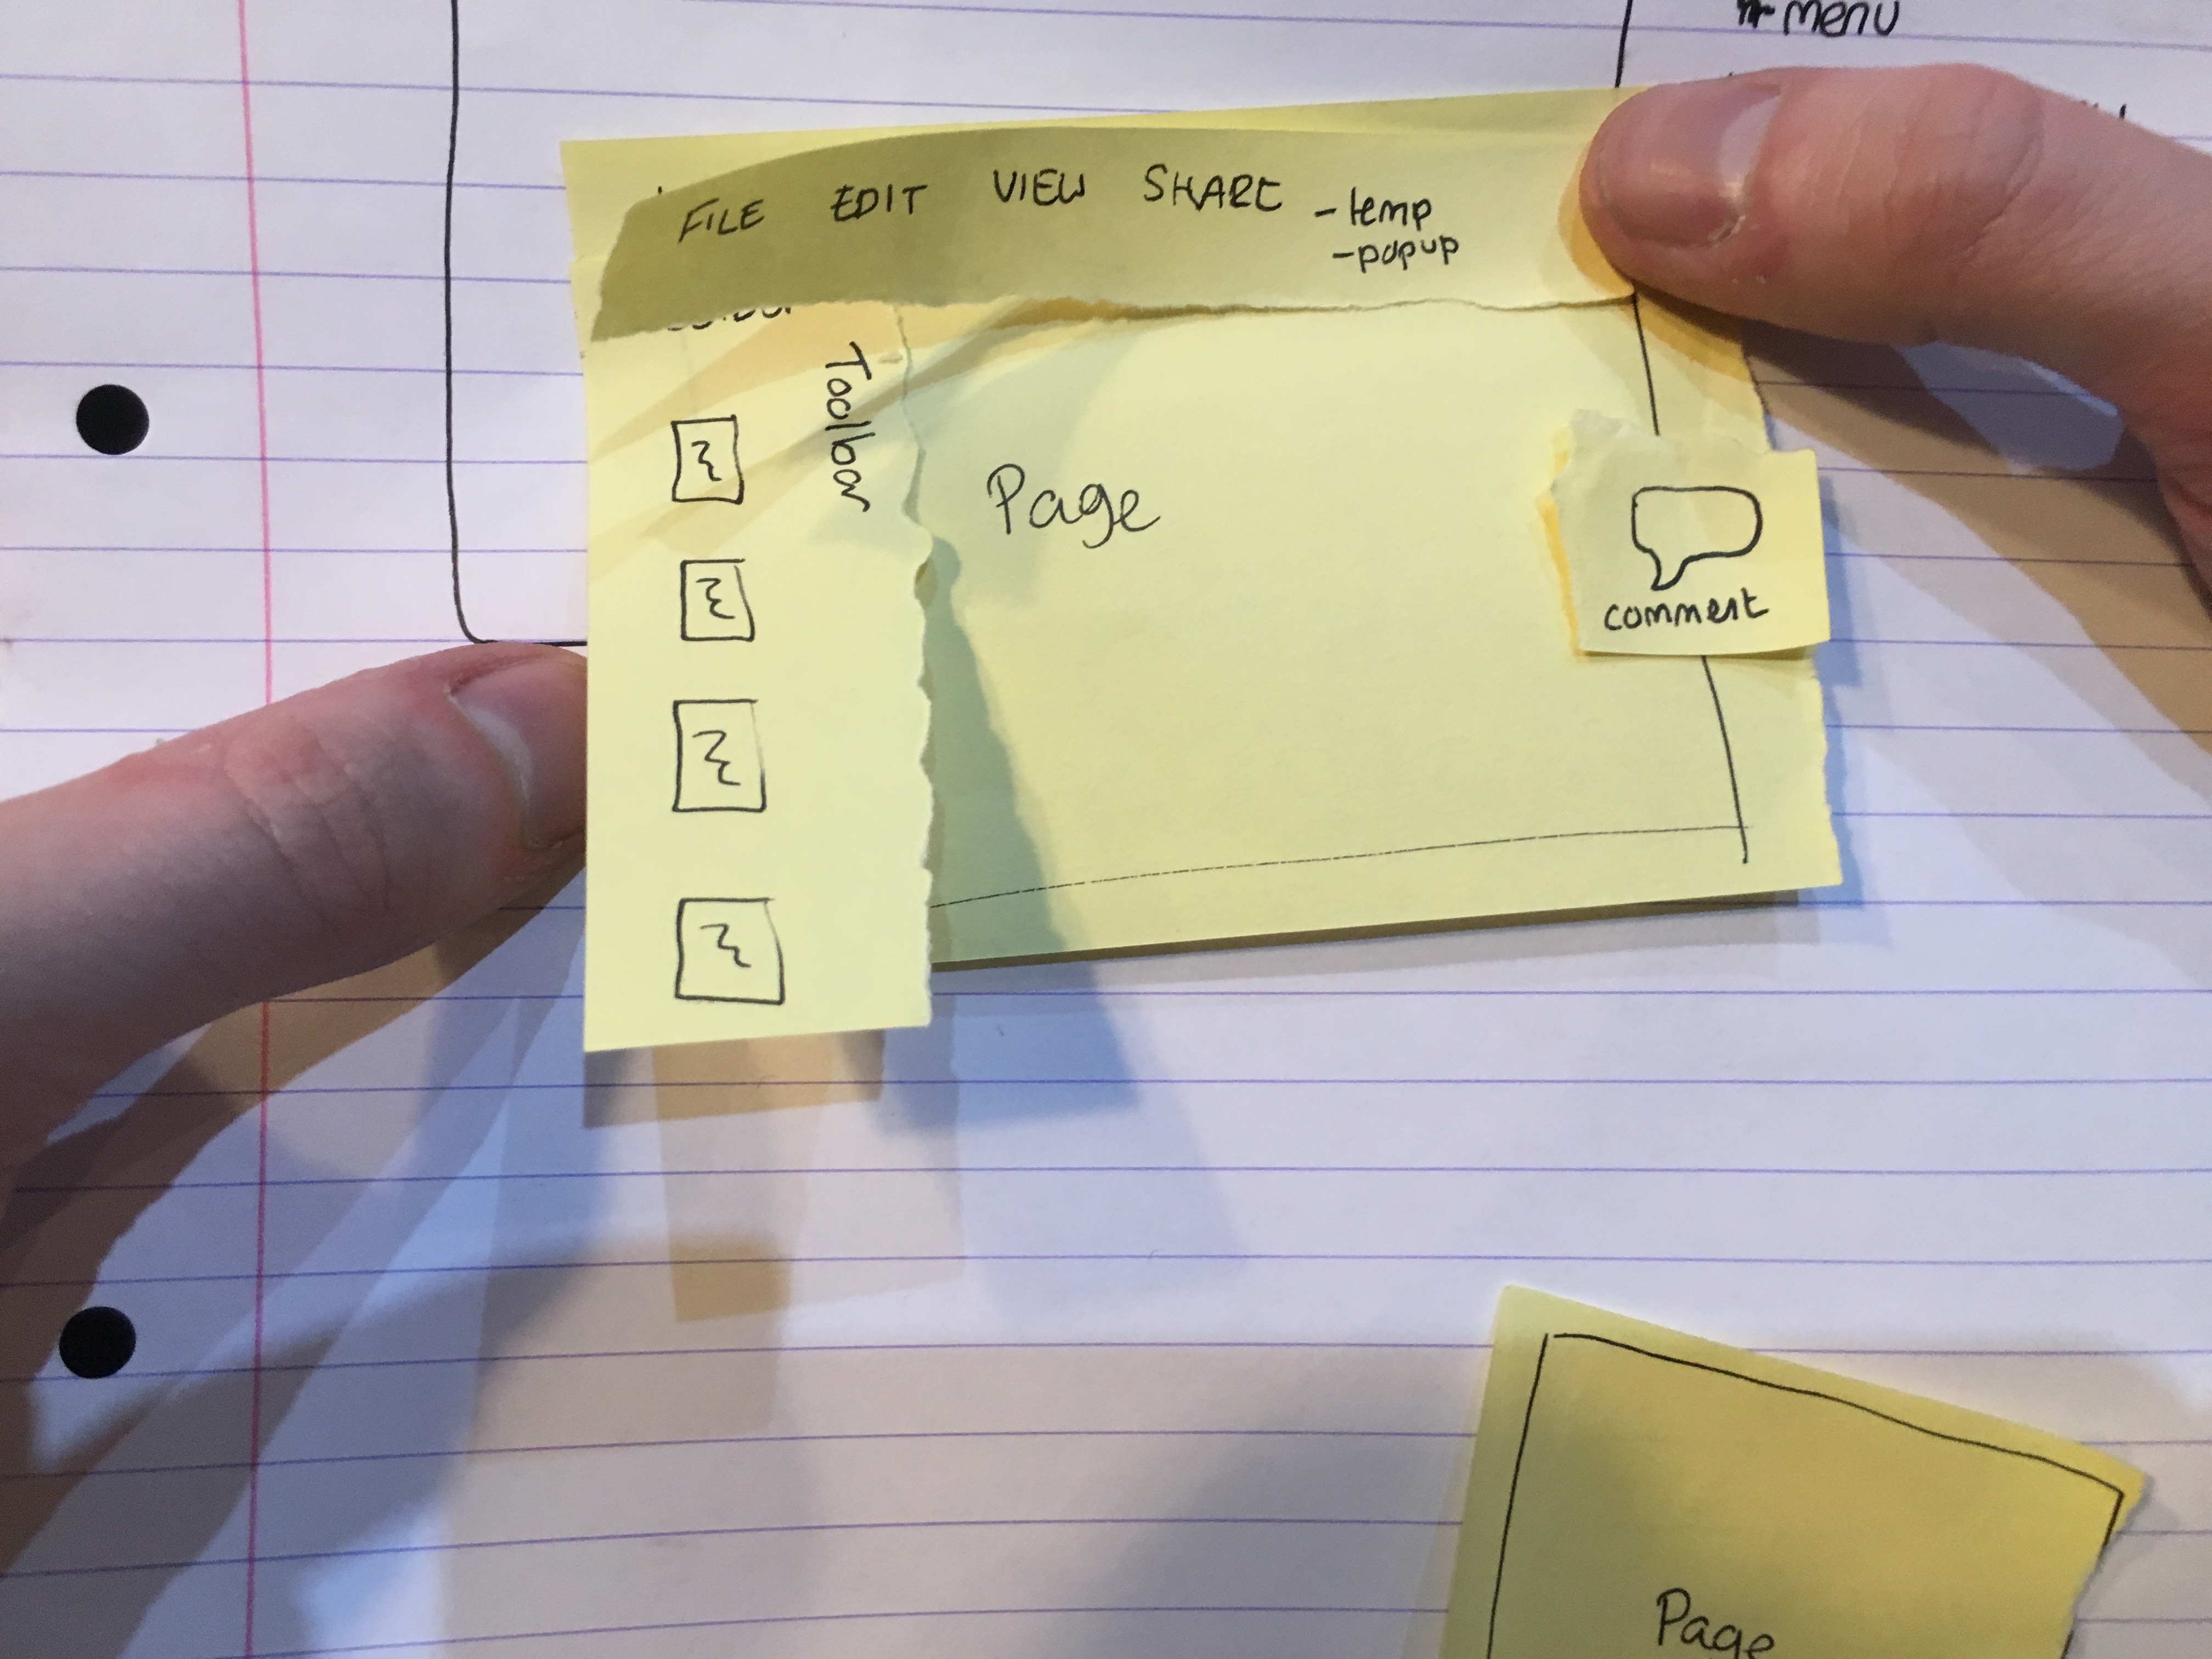 FILE EDIT VIEW SHARE - temp
- popup
Toolbar
Page
comment
Page
menu